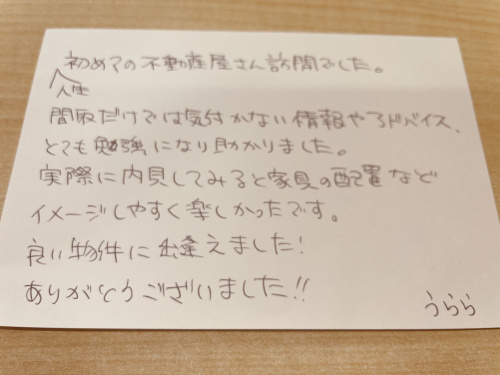 初めての不動産屋さん訪問でした。
人生
間取だけでは気付かない情報やアドバイス、
とても勉強になり助かりました。
実際に内見してみると家具の配置など
イメージしやすく楽しかったです。
良い物件に出逢えました!
ありがとうございました!!
うらら